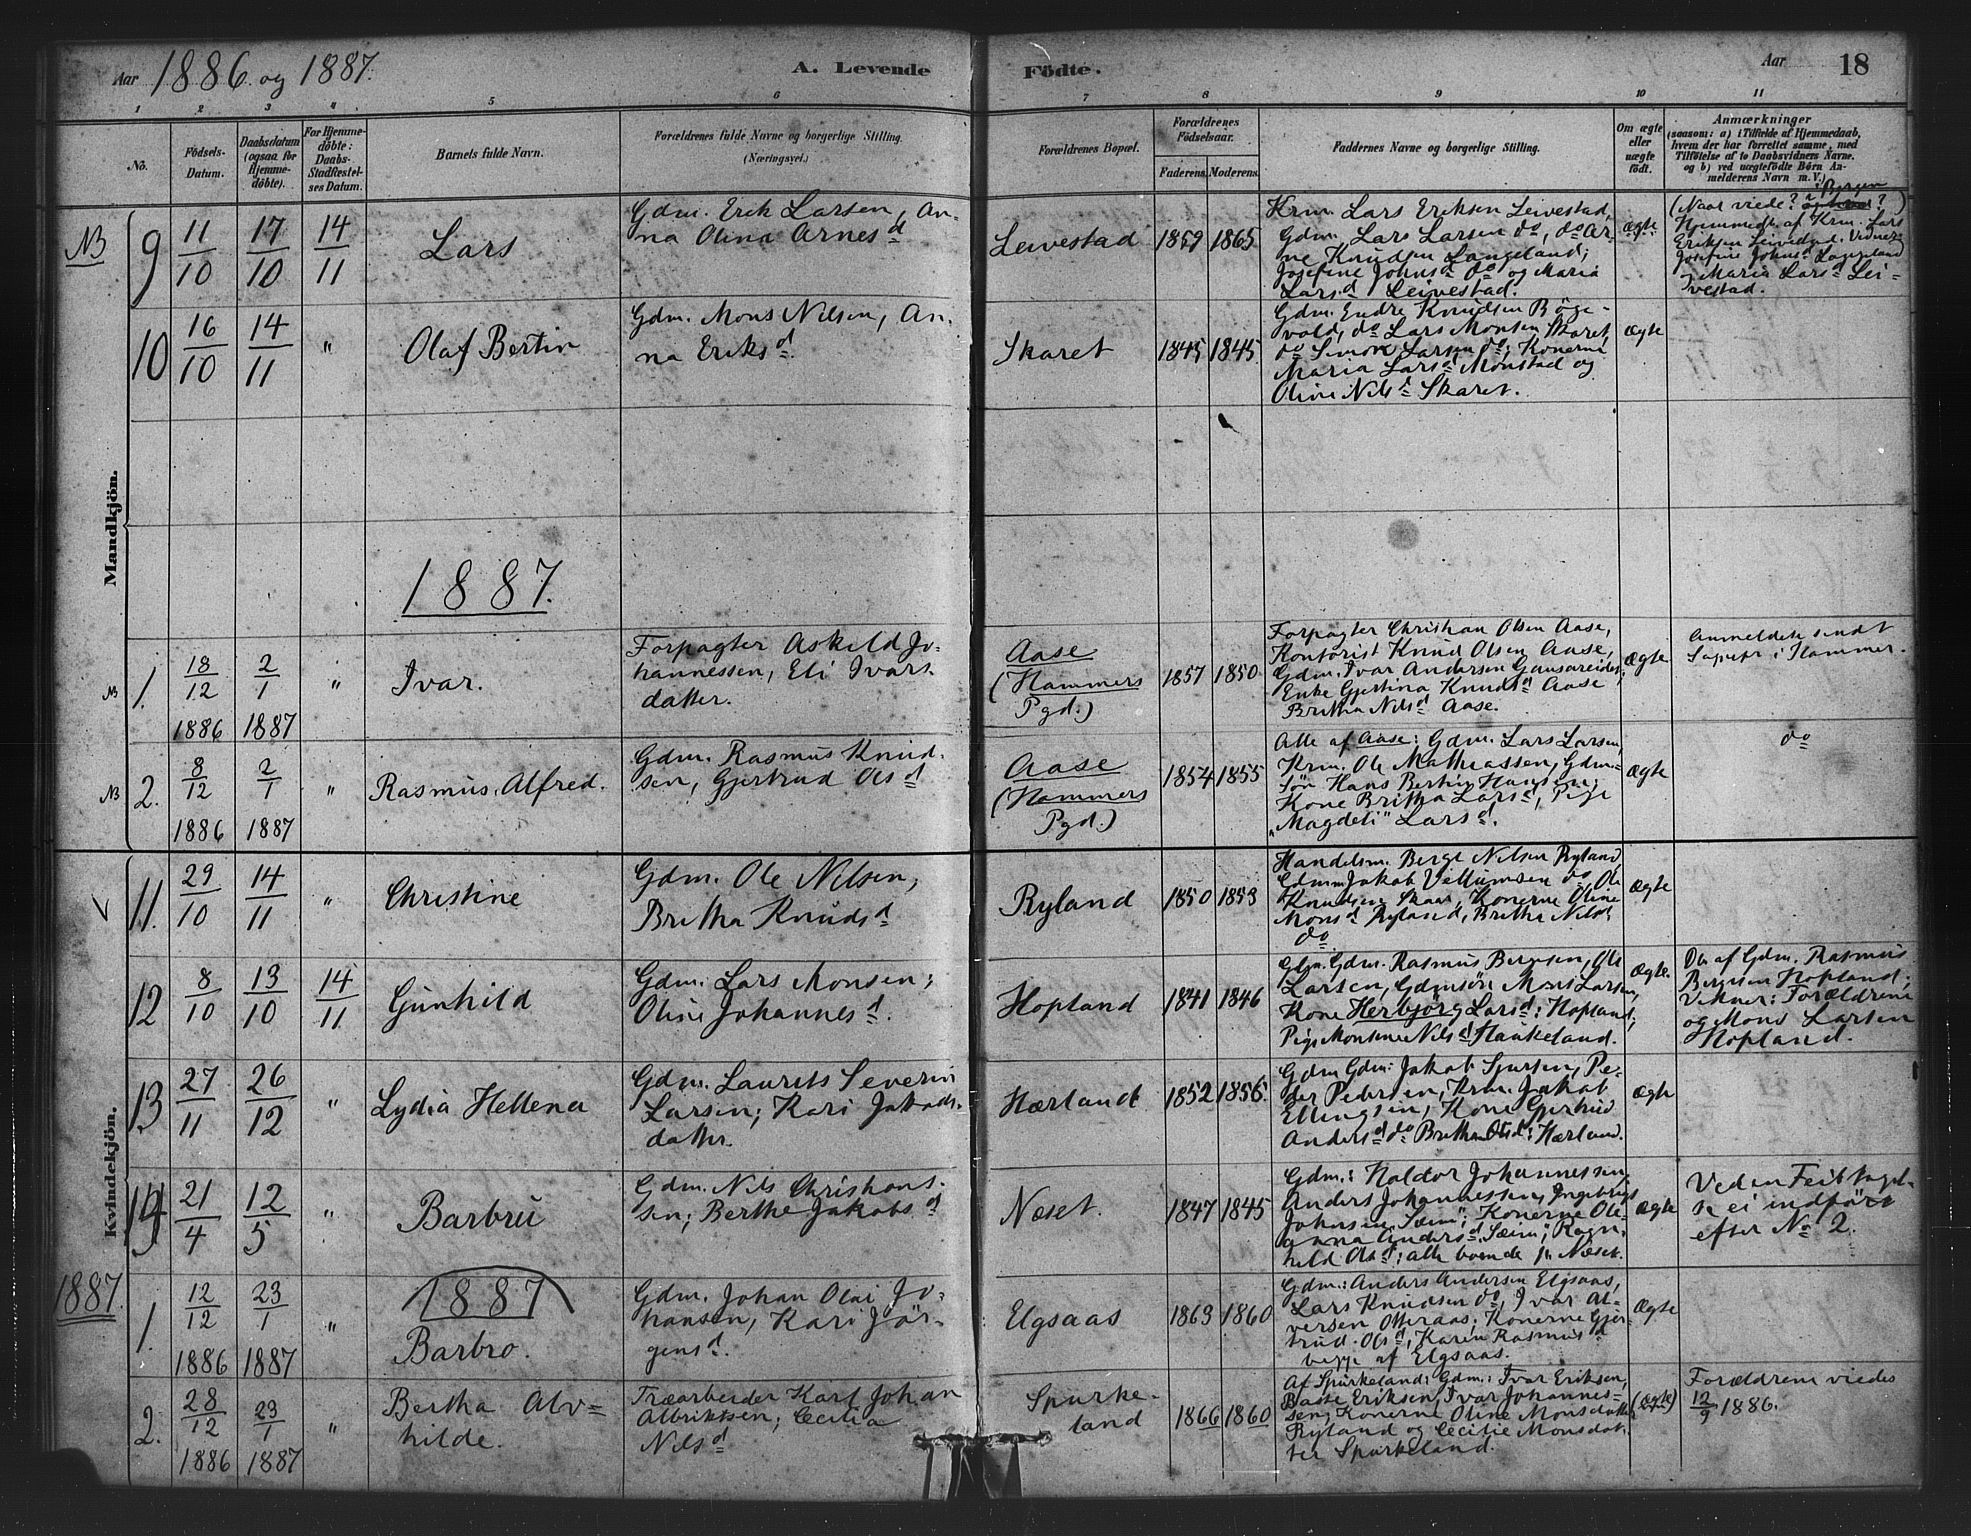 Aar 1886 og 1887.
A. Levende Födte.
Aar 18
1 2 3 " 5 6 7 8 9 10 11
No.
Födsels-
Datum.
Daabsdatum
(ogsaa for
Hjemme-
döbte).
For Hjemme-
döbte:
Daabs-
Stadfæstel-
ses Datum.
Barnets fulde Navn.
Forældrenes fulde Navne og borgerlige Stilling.
(Næringsvei.)
Forældrenes Bopæl.
Forældrenes
Födselsaar.
Faderens. Moderens.
Faddernes Navne og borgerlige Stilling.
Om ægte
eller
uægte
födt.
Anmærkninger
(saasom: a) i Tilfælde af Hjemmedaab,
hvem der har forrettet samme, med
Tilföielse af to Daabsvidners Navne.
og b) ved uægtefödte Börn An-
melderens Navn m. V.)
Mandkjön.
NB 9 11/10 17/10 14/11
Lars
Gdm. Erik Larsen, An-
na Olina Arnesd
Leivestad 1859 1865
Krm. Lars Eriksen Leivestad,
Gdm. Lars Larsen do, do Ar-
ne Knudsen Langeland;
Josefine Johnsd do og Maria
Larsd Leivestad.
ægte
(Naar viede? i Bergen ?)
Hjemmedt. af Krm. Lars
Eriksen Leivestad. Vidner:
Josefine Johnsd Langeland
og Maria Larsd Lei-
vestad.
10 16/10 14/11 "
Olaf Bertin
Gdm. Mons Nilsen, An-
na Eriksd.
Skaret 1845 1845
Gdm. Endre Knudsen Böge-
vold, do Lars Monsen Skaret,
do Simon Larsen do; Konerne
Maria Larsd Monstad og
Oline Nilsd Skaret.
ægte
1887.
NB 1. 18/12 1886 2/1 1887 "
Ivar.
Forpagter Askild Jo-
hannessen, Eli Ivars-
datter.
Aase
(Hammers
Pgd.)
1857 1850
Forpagter Christian Olsen Aase,
Kontorist Knud Olsen Aase,
Gdm. Ivar Andersen
Enke Gjertina Knudsd Aase
Britha Nilsd Aase.
Ægte
Anmeldelse sendt
i Hammer.
NB 2. 8/12 1886 2/1 1887 "
Rasmus Alfred.
Gdm. Rasmus Knud-
sen, Gjertrud Olsd
Aase
(Hammers
Pgd.)
1854 1855
Alle af Aase: Gdm. Lars Larsen,
Krm. Ole Mathiassen, Gdm-
sön Hans Bertin Hansen;
Kone Britha Larsd, Pige
"Magdeli" Larsd.
Ægte
do
Kvindekjön.
V 11. 29/10 14/11 "
Christine
Gdm. Ole Nilsen,
Britha Knudsd
Ryland 1850 1853
Handelsm. Berge Nilsen Ryland
Gdmm Jakob Villumsen do, Ole
Knudsen Skaar, Konerne Oline
Monsd Ryland, Britha Nilsd
do
Ægte
12 8/10 13/10 14/11
Gunhild
Gdm. Lars Monsen;
Oline Johannesd.
Hopland 1841 1846
Gdm. Rasmus Bergesen, Ole
Larsen, Gdmsön Mons Larsen,
Kone Herbjörg Larsd: Hopland;
Pige Monsine Nilsd Haukeland.
Ægte.
Db af Gdm. Rasmus
Bergesen Hopland;
Vidner: Forældrene
og Mons Larsen
Hopland.
13 27/11 26/12 "
Lydia Hellena
Gdm. Laurits Severin
Larsen; Kari Jakobs-
datter.
Hærland 1852 1856.
Gdm Gdm: Jakob Sjursen, Pe-
der Pedersen, Krm. Jakob
Ellingsen, Kone Gjertrud
Andersd do Britha Olsd: Hærland.
Ægte
14 21/4 12/5 "
Barbru
Gdm. Nils Christians-
sen; Berthe Jakobsd
Næset. 1847 1845
Gdm: Haldor Johannessen,
Anders Johannessen, Ingebrigt
Johnsen Sæim; Konerne Oli-
anna Andersd. Sæim; Ragn-
hild Olsd; alle boende p. Næset.
Ægte
Ved en Feiltagel-
se ei indfört
efter No 2.
1887. 1. 12/12 1886 23/1 1887 "
1887
Barbro.
Gdm. Johan Olai Jo-
hansen, Kari Jör-
gensd.
Elgsaas 1863 1860
Gdm: Anders Andersen Elgsaas,
Lars Knudsen do, Ivar Al-
versen Otteraas; Konerne Gjer-
trud Olsd, Karen Rasmusd
begge af Elgsaas.
Ægte
2. 28/12 1886 23/1 1887 "
Bertha Alv=
hilde.
Træarbeider Karl Johan
Albriktsen; Cecilia
Nilsd
Spurke-
land
1866 1860
Af Spurkeland: Gdm: Ivar Eriksen,
Baste Eriksen, Ivar Johannes-
sen; Konerne Oline Monsdatter
Ryland og Cecilie Monsdat-
ter Spurkeland.
(ægte)
Forældrene viedes
12/9 1886.